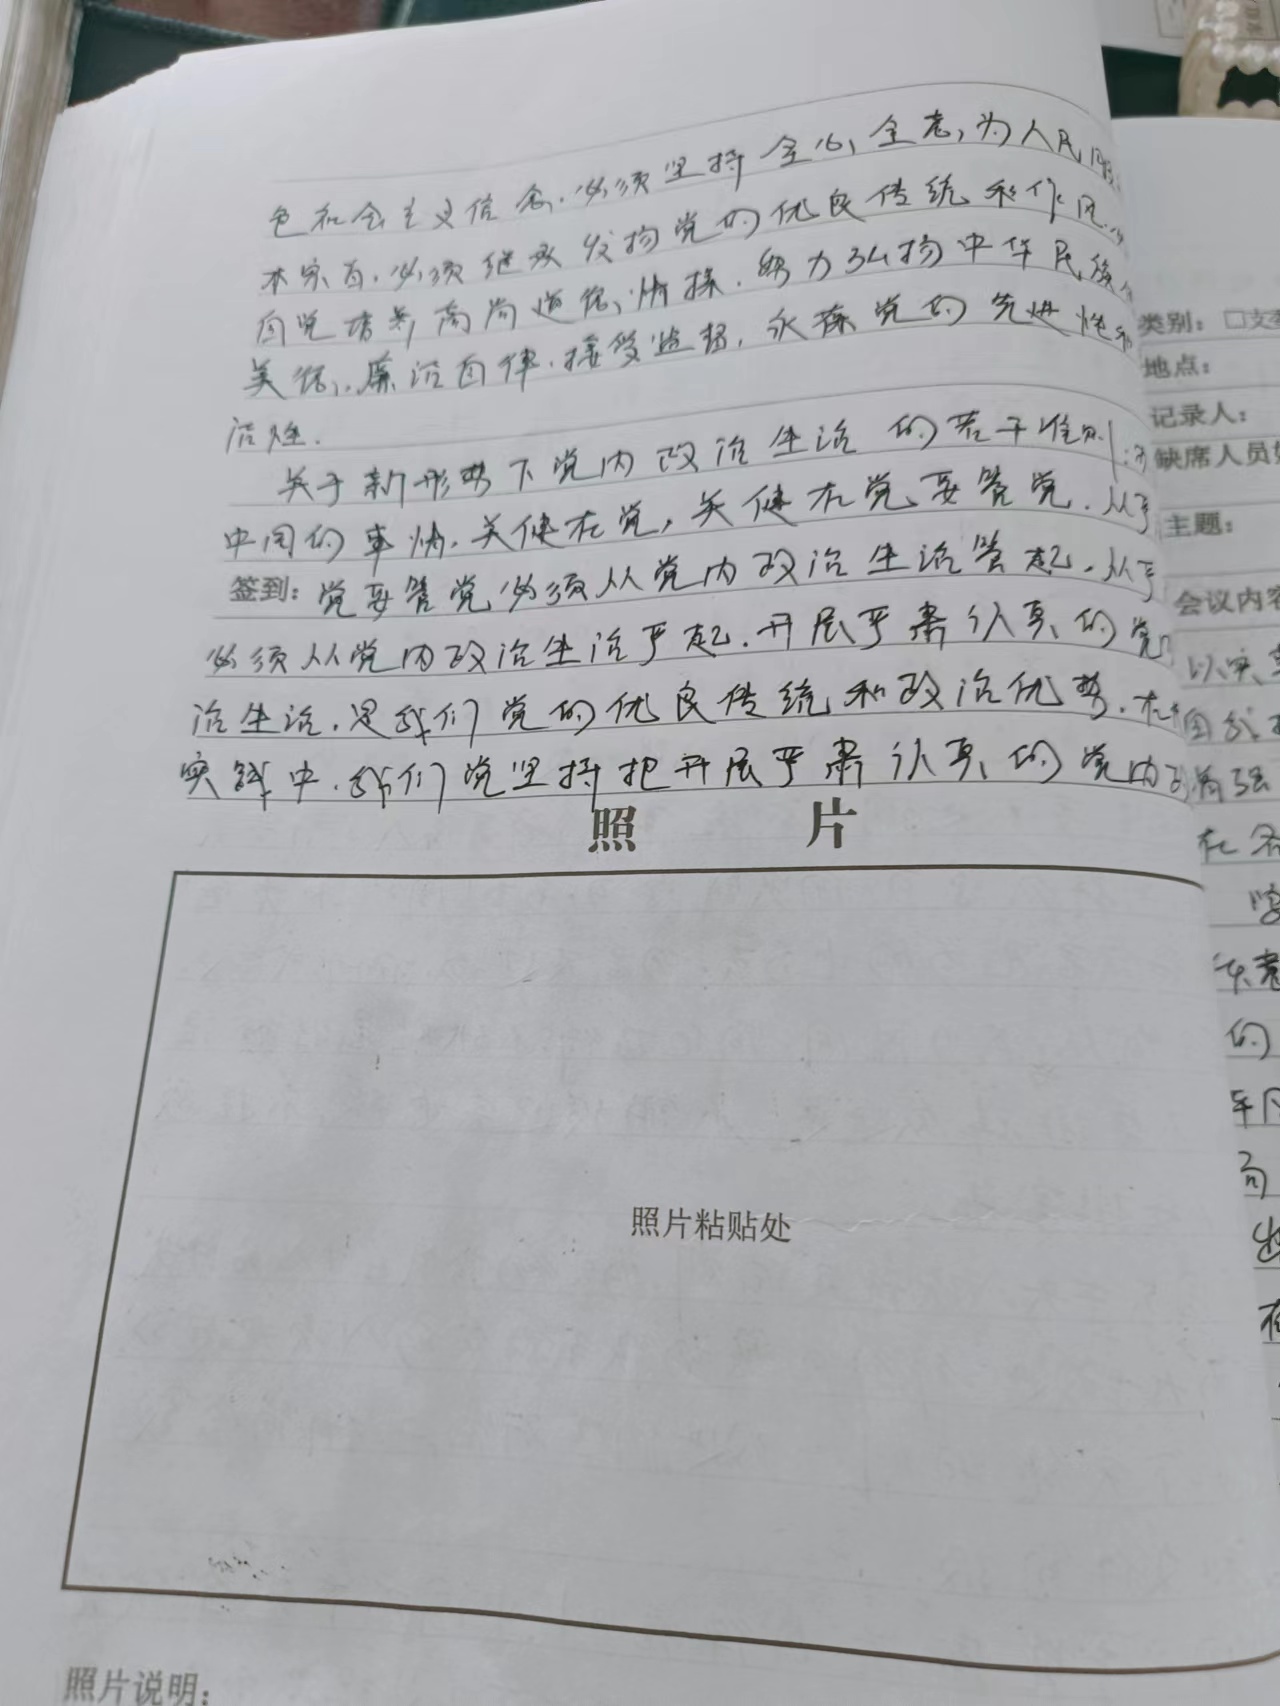 色社会主义信念.必须坚持全心全意,为人民服
本宗旨.必须继承发扬党的优良传统和作风.
自觉培养高尚道德情操.努力弘扬中华民族
美德.廉洁自律.接受监督,永葆党的先进性和
洁性.
关于新形势下党内政治生活的若干准则:
中国的事情.关健在党,关健在党要管党.从
签到:党要管党必须从党内政治生活管起.从严
必须从党内政治生活严起.开展严肃认真的党
治生活.是我们党的优良传统和政治优势.在
实践中.我们党坚持把开展严肃认真的党内
照 片
照片粘贴处
照片说明:
类别:□支
地点:
记录人:
缺席人员
主题:
会议内容
以实
国我
有强
在各
的
平凡